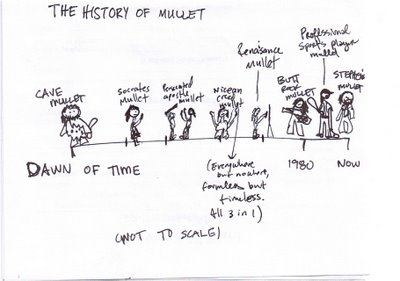 THE HISTORY OF MULLET
CAVE
MULLET
SOCRATES
MULLET
Persecuted
apostle
mullet
Nicean
creed
mullet
Renaisance
mullet
BUTT
ROCK
MULLET
Professional
Sports player
mullet
STEPHEN'S
MULLET
DAWN OF TIME
(Everywhere
but nowhere,
formless but
timeless.
All 3 in 1)
1980
NOW
(NOT TO SCALE)